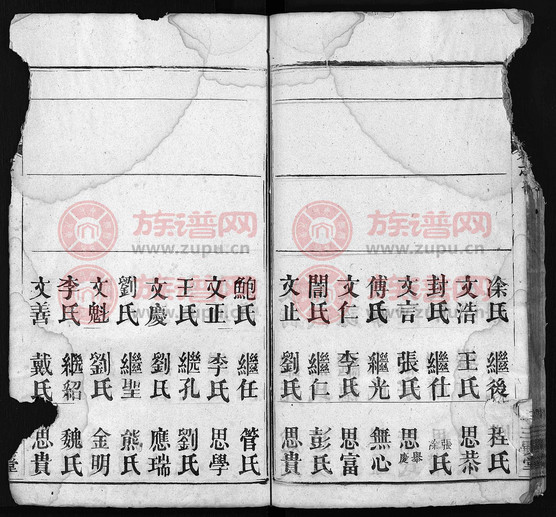 徐氏 繼後 程氏
文浩 王氏 思恭
封氏 繼仕 張氏 涂氏
文言 張氏 思舉 慶
傅氏 繼光 無心
文仁 李氏 思富
閻氏 繼仁 彭氏
文止 劉氏 思貴
鮑氏 繼任 管氏
文正 李氏 思學
王氏 繼孔 劉氏
文慶 劉氏 應瑞
劉氏 繼聖 熊氏
文魁 劉氏 金明
李氏 繼紹 魏氏
文善 戴氏 思貴
族谱网
www.zupu.cn
族谱网
www.zupu.cn